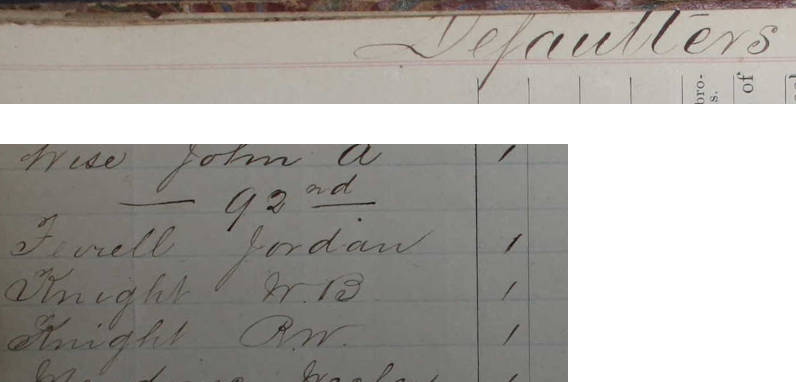 Defaulters
bro-
s.
of
Wise John A 1
— 92nd —
Ferrell Jordan 1
Knight W.B 1
Knight R.W. 1